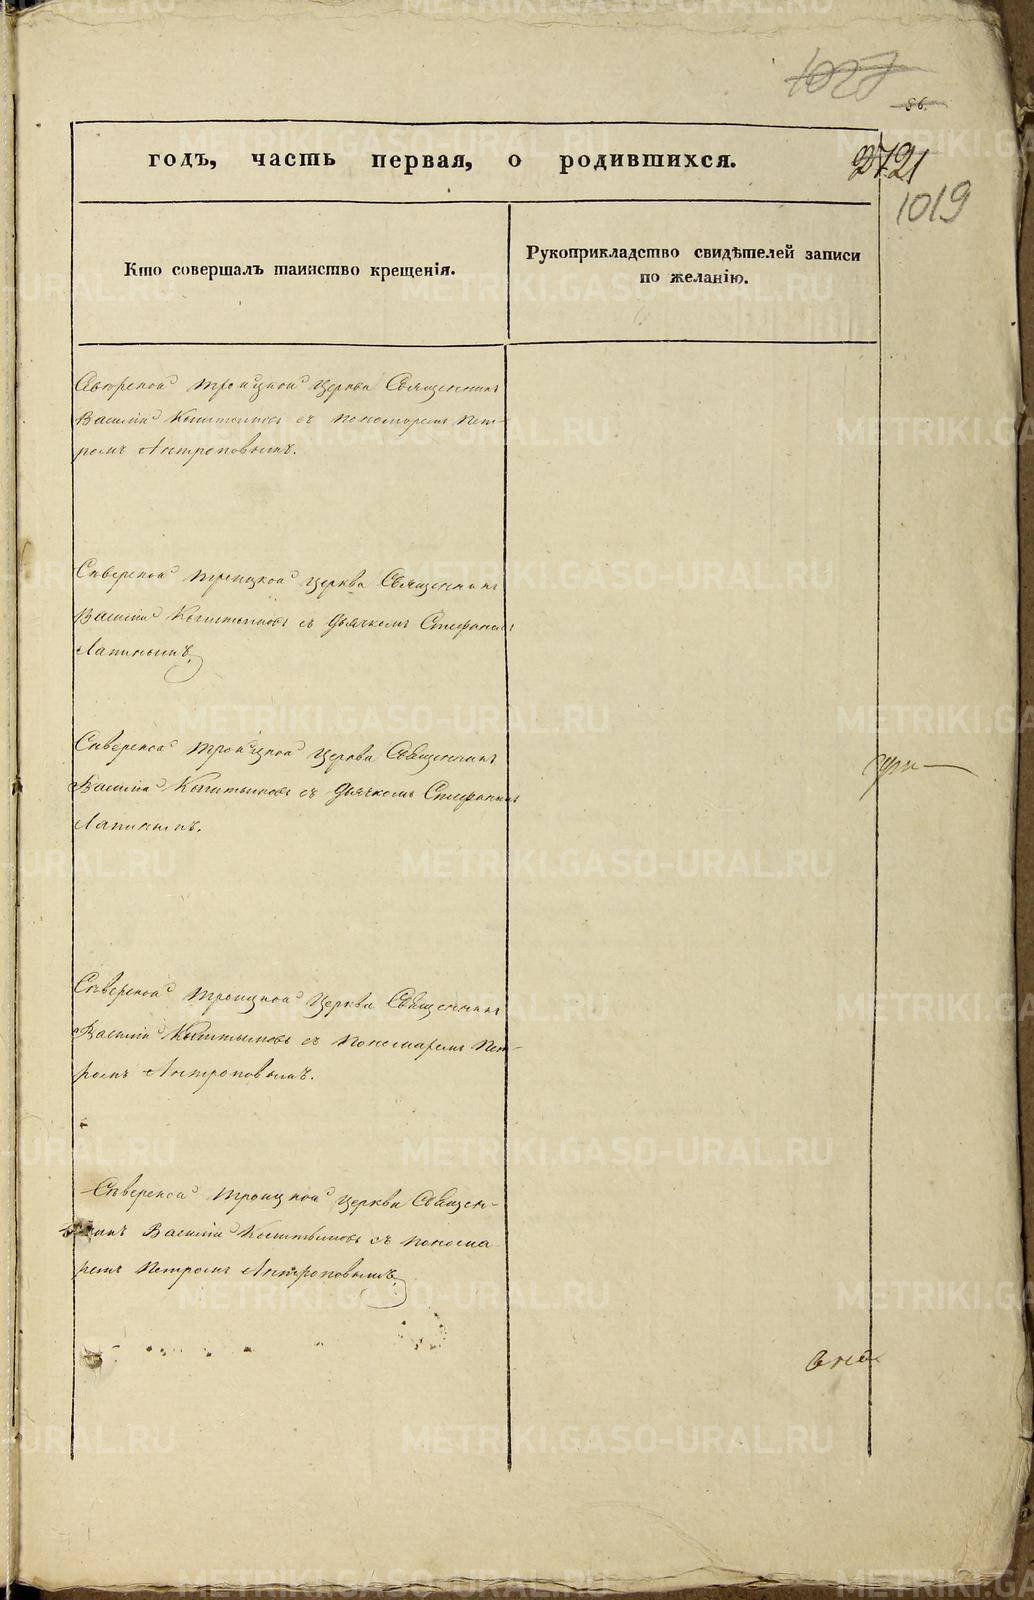 1027
56.
годъ, часть первая, о родившихся.
2721
1019
Кто совершалъ таинство крещенія.
Рукоприкладство свидѣтелей записи
по желанію.
Сѣверской Троицкой Церкви Священникъ
Василій с Пономаремъ Пет-
ромъ Антроповымъ.
Сѣверской Троицкой Церкви Священникъ
Василій съ Дьячкомъ Стефаномъ
Лапинымъ.
Сѣверской Троицкой Церкви Священникъ
Василій съ Дьячкомъ Стефаномъ
Лапинымъ.
Сѣверской Троицкой Церкви Священникъ
Василій съ Пономаремъ Пет-
ромъ Антроповымъ.
Сѣверской Троицкой Церкви Священ-
никъ Василій съ Понома
ремъ Петромъ Антроповымъ.
METRIKI.GASO-URAL.RU